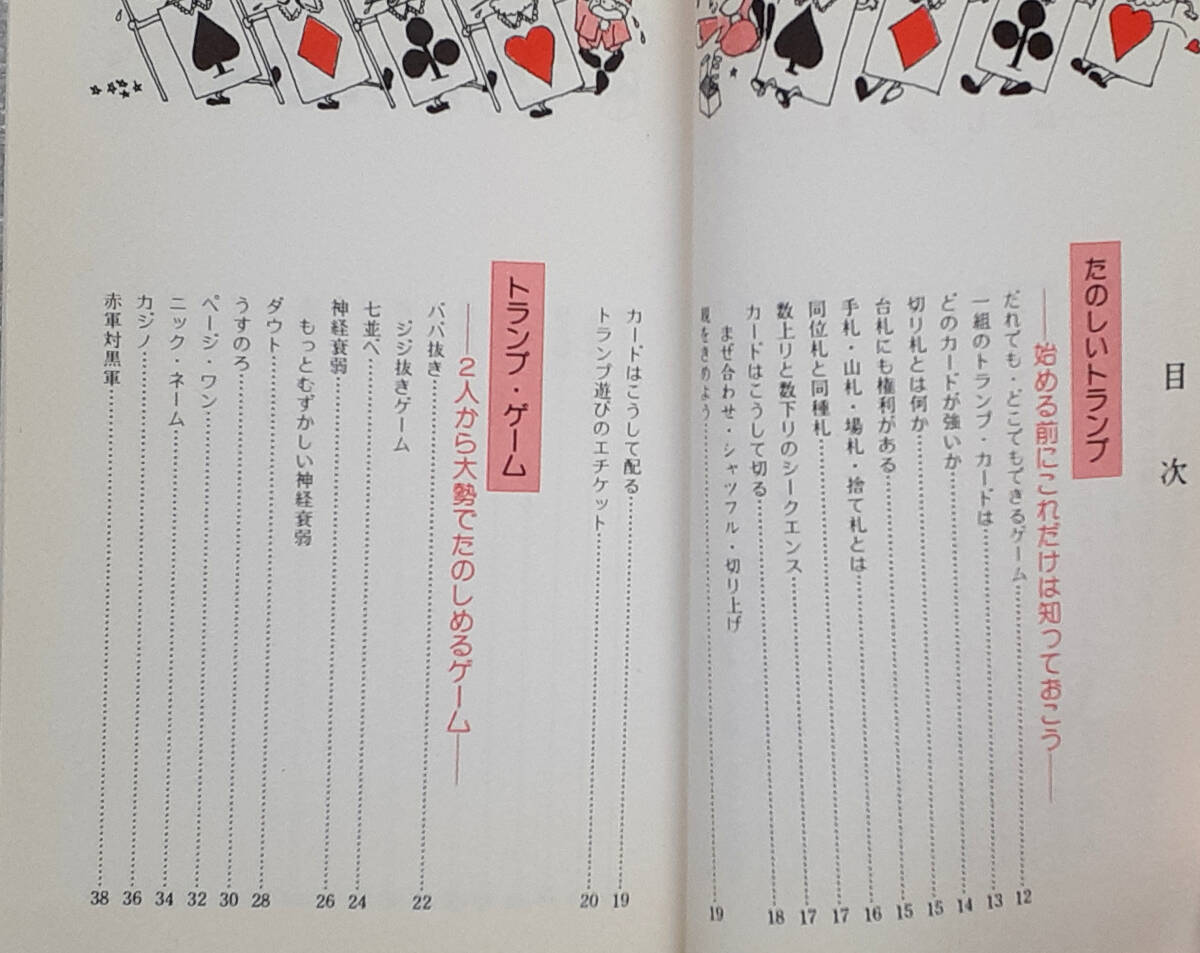 目次
たのしいトランプ
——始める前にこれだけは知っておこう——
だれでも・どこでもできるゲーム……12
一組のトランプ・カードは……13
どのカードが強いか……14
切り札とは何か……15
台札にも権利がある……15
手札・山札・場札・捨て札とは……16
同位札と同種札……17
数上りと数下りのシークエンス……17
カードはこうして切る……18
まぜ合わせ・シャッフル・切り上げ
親をきめよう……19
カードはこうして配る……19
トランプ遊びのエチケット……20
トランプ・ゲーム
——2人から大勢でたのしめるゲーム——
ババ抜き……22
ジジ抜きゲーム
七並べ……24
神経衰弱……26
もっとむずかしい神経衰弱
ダウト……28
うすのろ……30
ページ・ワン……32
ニック・ネーム……34
カジノ……36
赤軍対黒軍……38